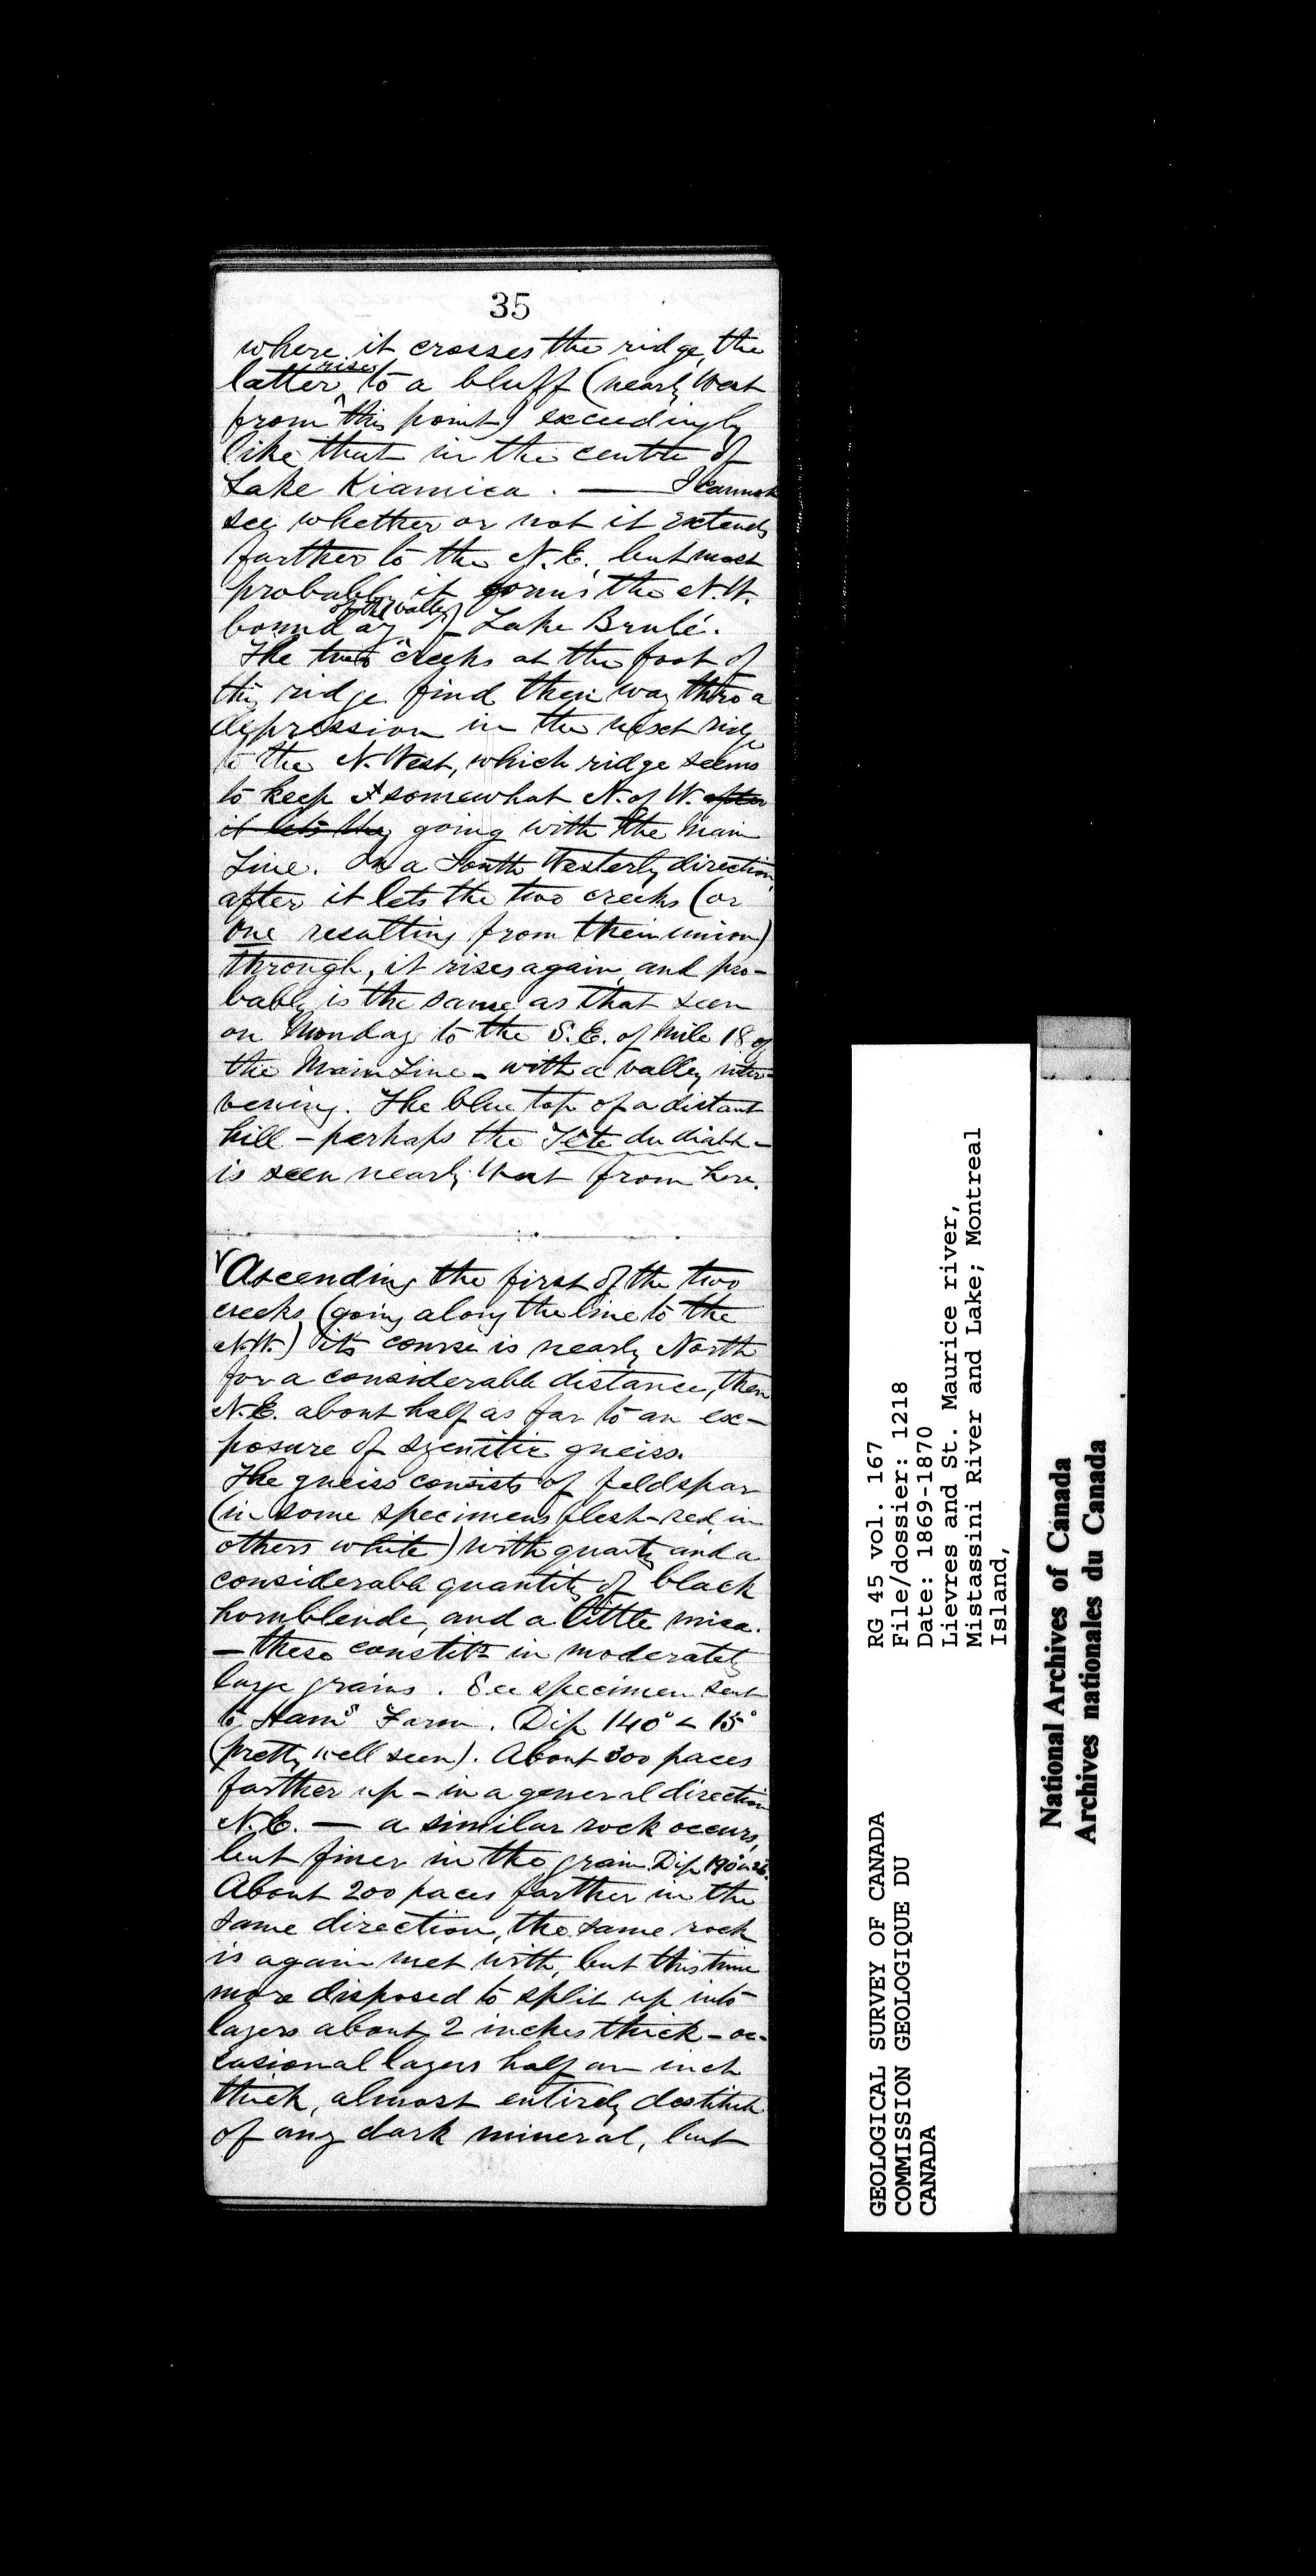 35
where it crosses the ridge, the
latter rises to a bluff (nearly West
from this point) exceedingly
like that in the centre of
Lake Kiamica. — I cannot
see whether or not it extends
farther to the N.E., but most
probably it forms the N.W.
boundary of the valley of Lake Brulé.
The two creeks at the foot of
this ridge find their way thro a
depression in the next ridge
to the N. West, which ridge seems
to keep somewhat N. of W. after
it lets they going with the Main
Line. In a South Westerly direction,
after it lets the two creeks (or
one resulting from their union)
through, it rises again, and pro-
bably is the same as that seen
on Monday to the S.E. of Mile 18 of
the Main Line - with a valley inter-
vening. The blue top of a distant
hill - perhaps the Tête du diable -
is seen nearly West from here.
Ascending the first of the two
creeks (going along the line to the
N.W.) its course is nearly North
for a considerable distance, then
N.E. about half as far to an ex-
posure of syenitic gneiss.
The gneiss consists of feldspar
(in some specimens flesh-red, in
others white) with quartz and a
considerable quantity of black
hornblende, and a little mica.
- these constits in moderately
large grains. See specimen sent
to Ham's Farm. Dip 140° < 15°
(pretty well seen). About 300 paces
farther up - in a general direction
N.E. — a similar rock occurs,
but finer in the grain. Dip 190°
About 200 paces farther in the
same direction, the same rock
is again met with, but this time
more disposed to split up into
layers about 2 inches thick - oc-
casional layers half an inch
thick, almost entirely destitute
of any dark mineral, but
GEOLOGICAL SURVEY OF CANADA
COMMISSION GEOLOGIQUE DU
CANADA
RG 45 vol. 167
File/dossier: 1218
Date: 1869-1870
Lievres and St. Maurice river,
Mistassini River and Lake; Montreal
Island,
National Archives of Canada
Archives nationales du Canada